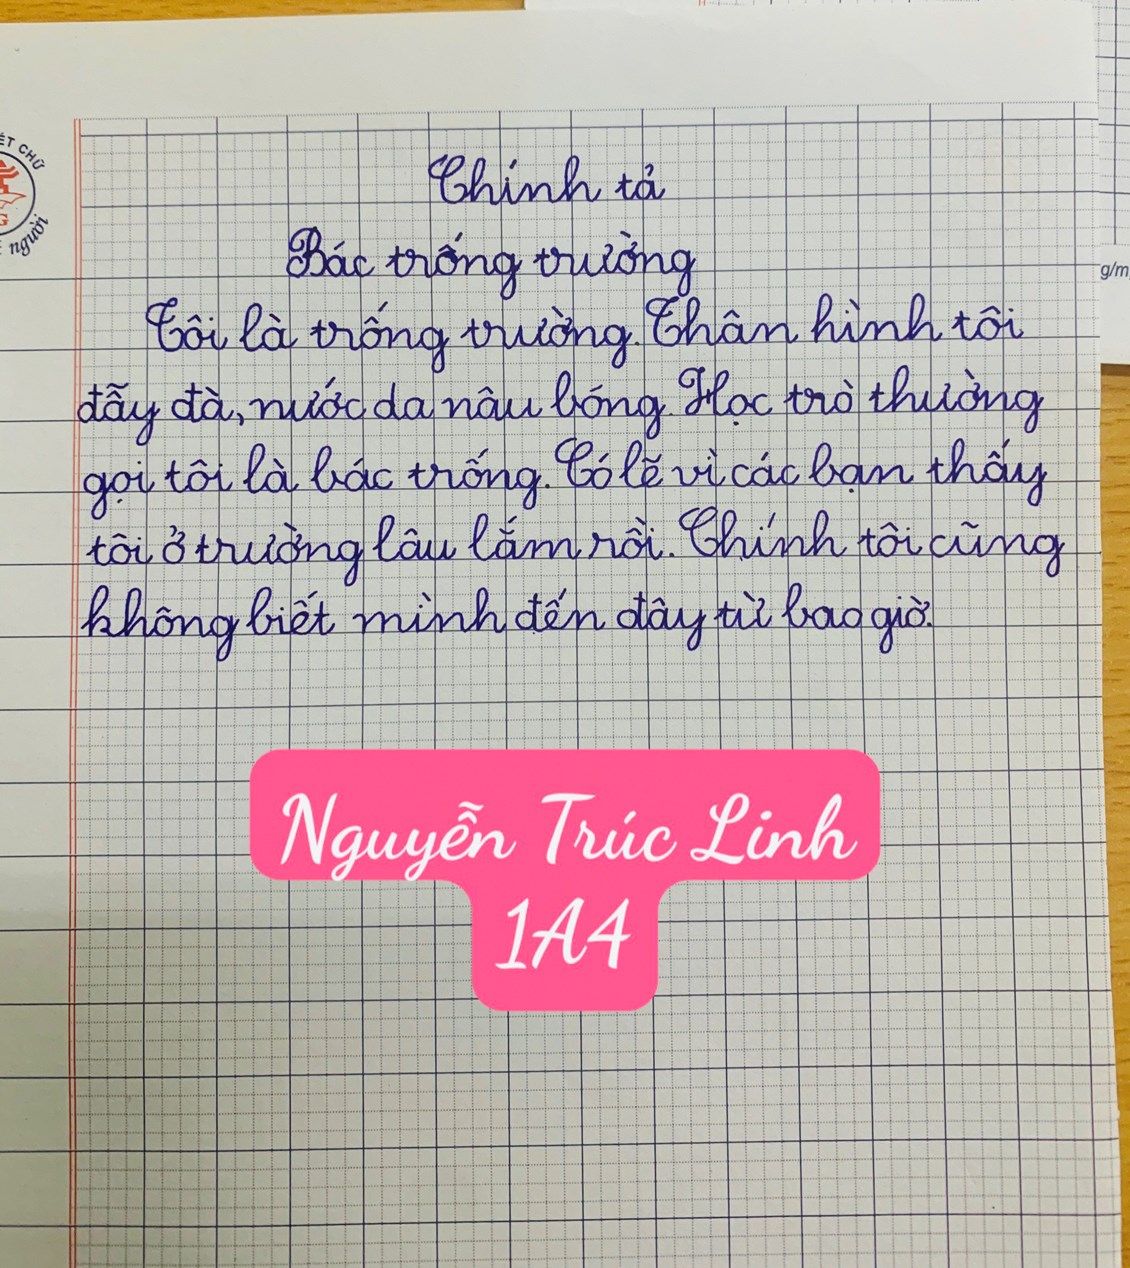 ẾT CHỮ
người
g/m
Chính tả
Bác trống trường
Tôi là trống trường. Thân hình tôi
đẫy đà, nước da nâu bóng. Học trò thường
gọi tôi là bác trống. Có lẽ vì các bạn thấy
tôi ở trường lâu lắm rồi. Chính tôi cũng
không biết mình đến đây từ bao giờ.
Nguyễn Trúc Linh
1A4